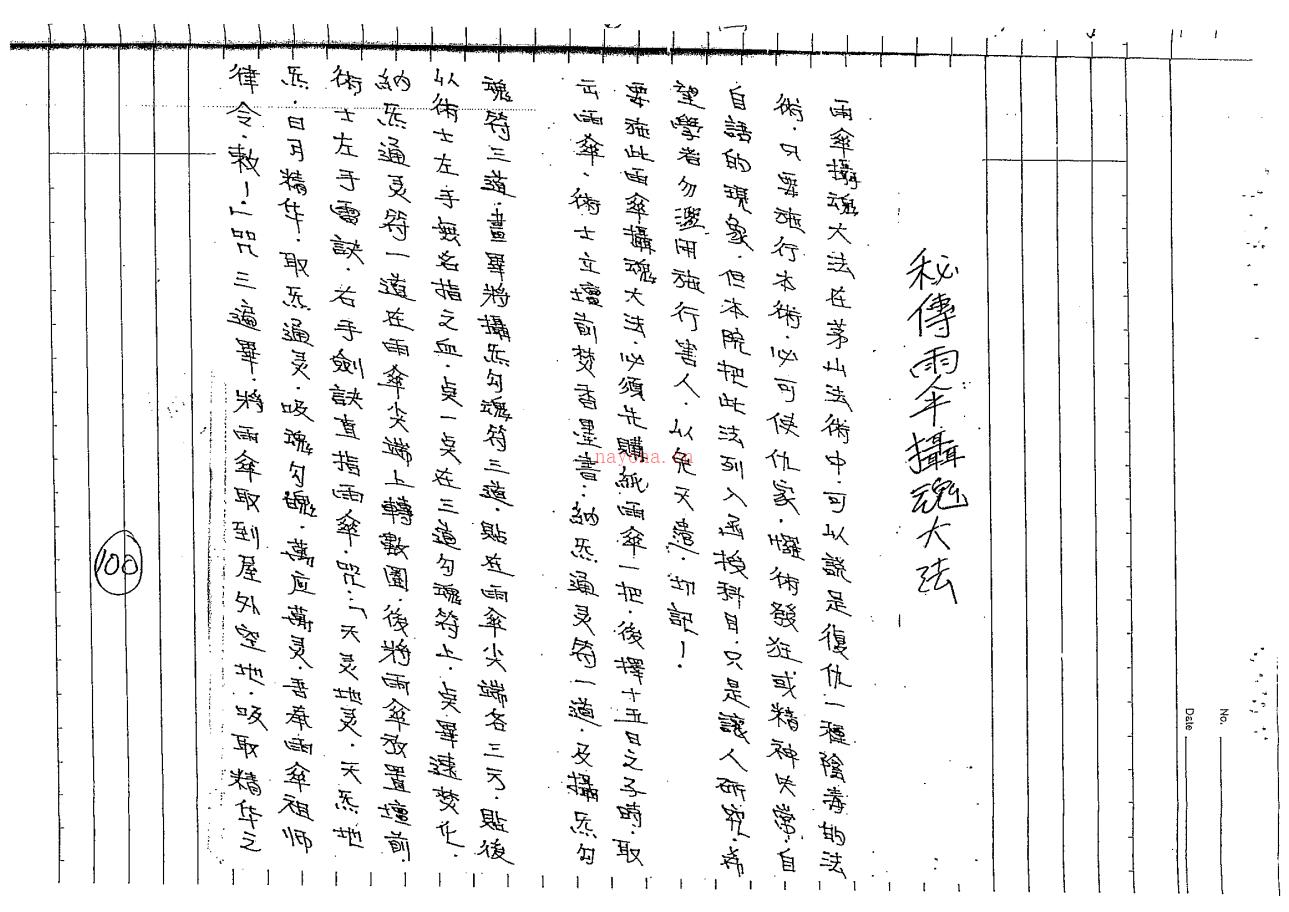 秘傳雨傘攝魂大法
雨傘攝魂大法在茅山法術中.可以說是復仇一種陰毒的法
術.只要施行本術.必可使仇家.懼術發狂.或精神失常.自
自語的現象.但本院把此法列入函授科目.只是讓人研究.希
望學者勿濫用施行害人.以免天譴.切記!.
要施此雨傘攝魂大法.必須先購紙雨傘一把.後擇十五日之子時.取
出雨傘.術士立壇前焚香墨書:納炁通灵符一道.及攝炁勾
魂符三道.畫畢將攝炁勾魂符三道.貼在雨傘尖端各三方.貼後
以術士左手無名指之血.点一点在三道勾魂符上.点畢速焚化.
納炁通灵符一道在雨傘尖端上轉數圈.後將雨傘放置壇前.
術士左手雷訣.右手劍訣直指雨傘.咒:「天灵地灵.天炁地
炁.日月精华.取炁通灵.吸魂勾魂.萬应萬灵.吾奉雨傘祖师
律令.敕!」咒三遍畢.將雨傘取到屋外空地.吸取精华之
100
No.
Date
nayona.cn